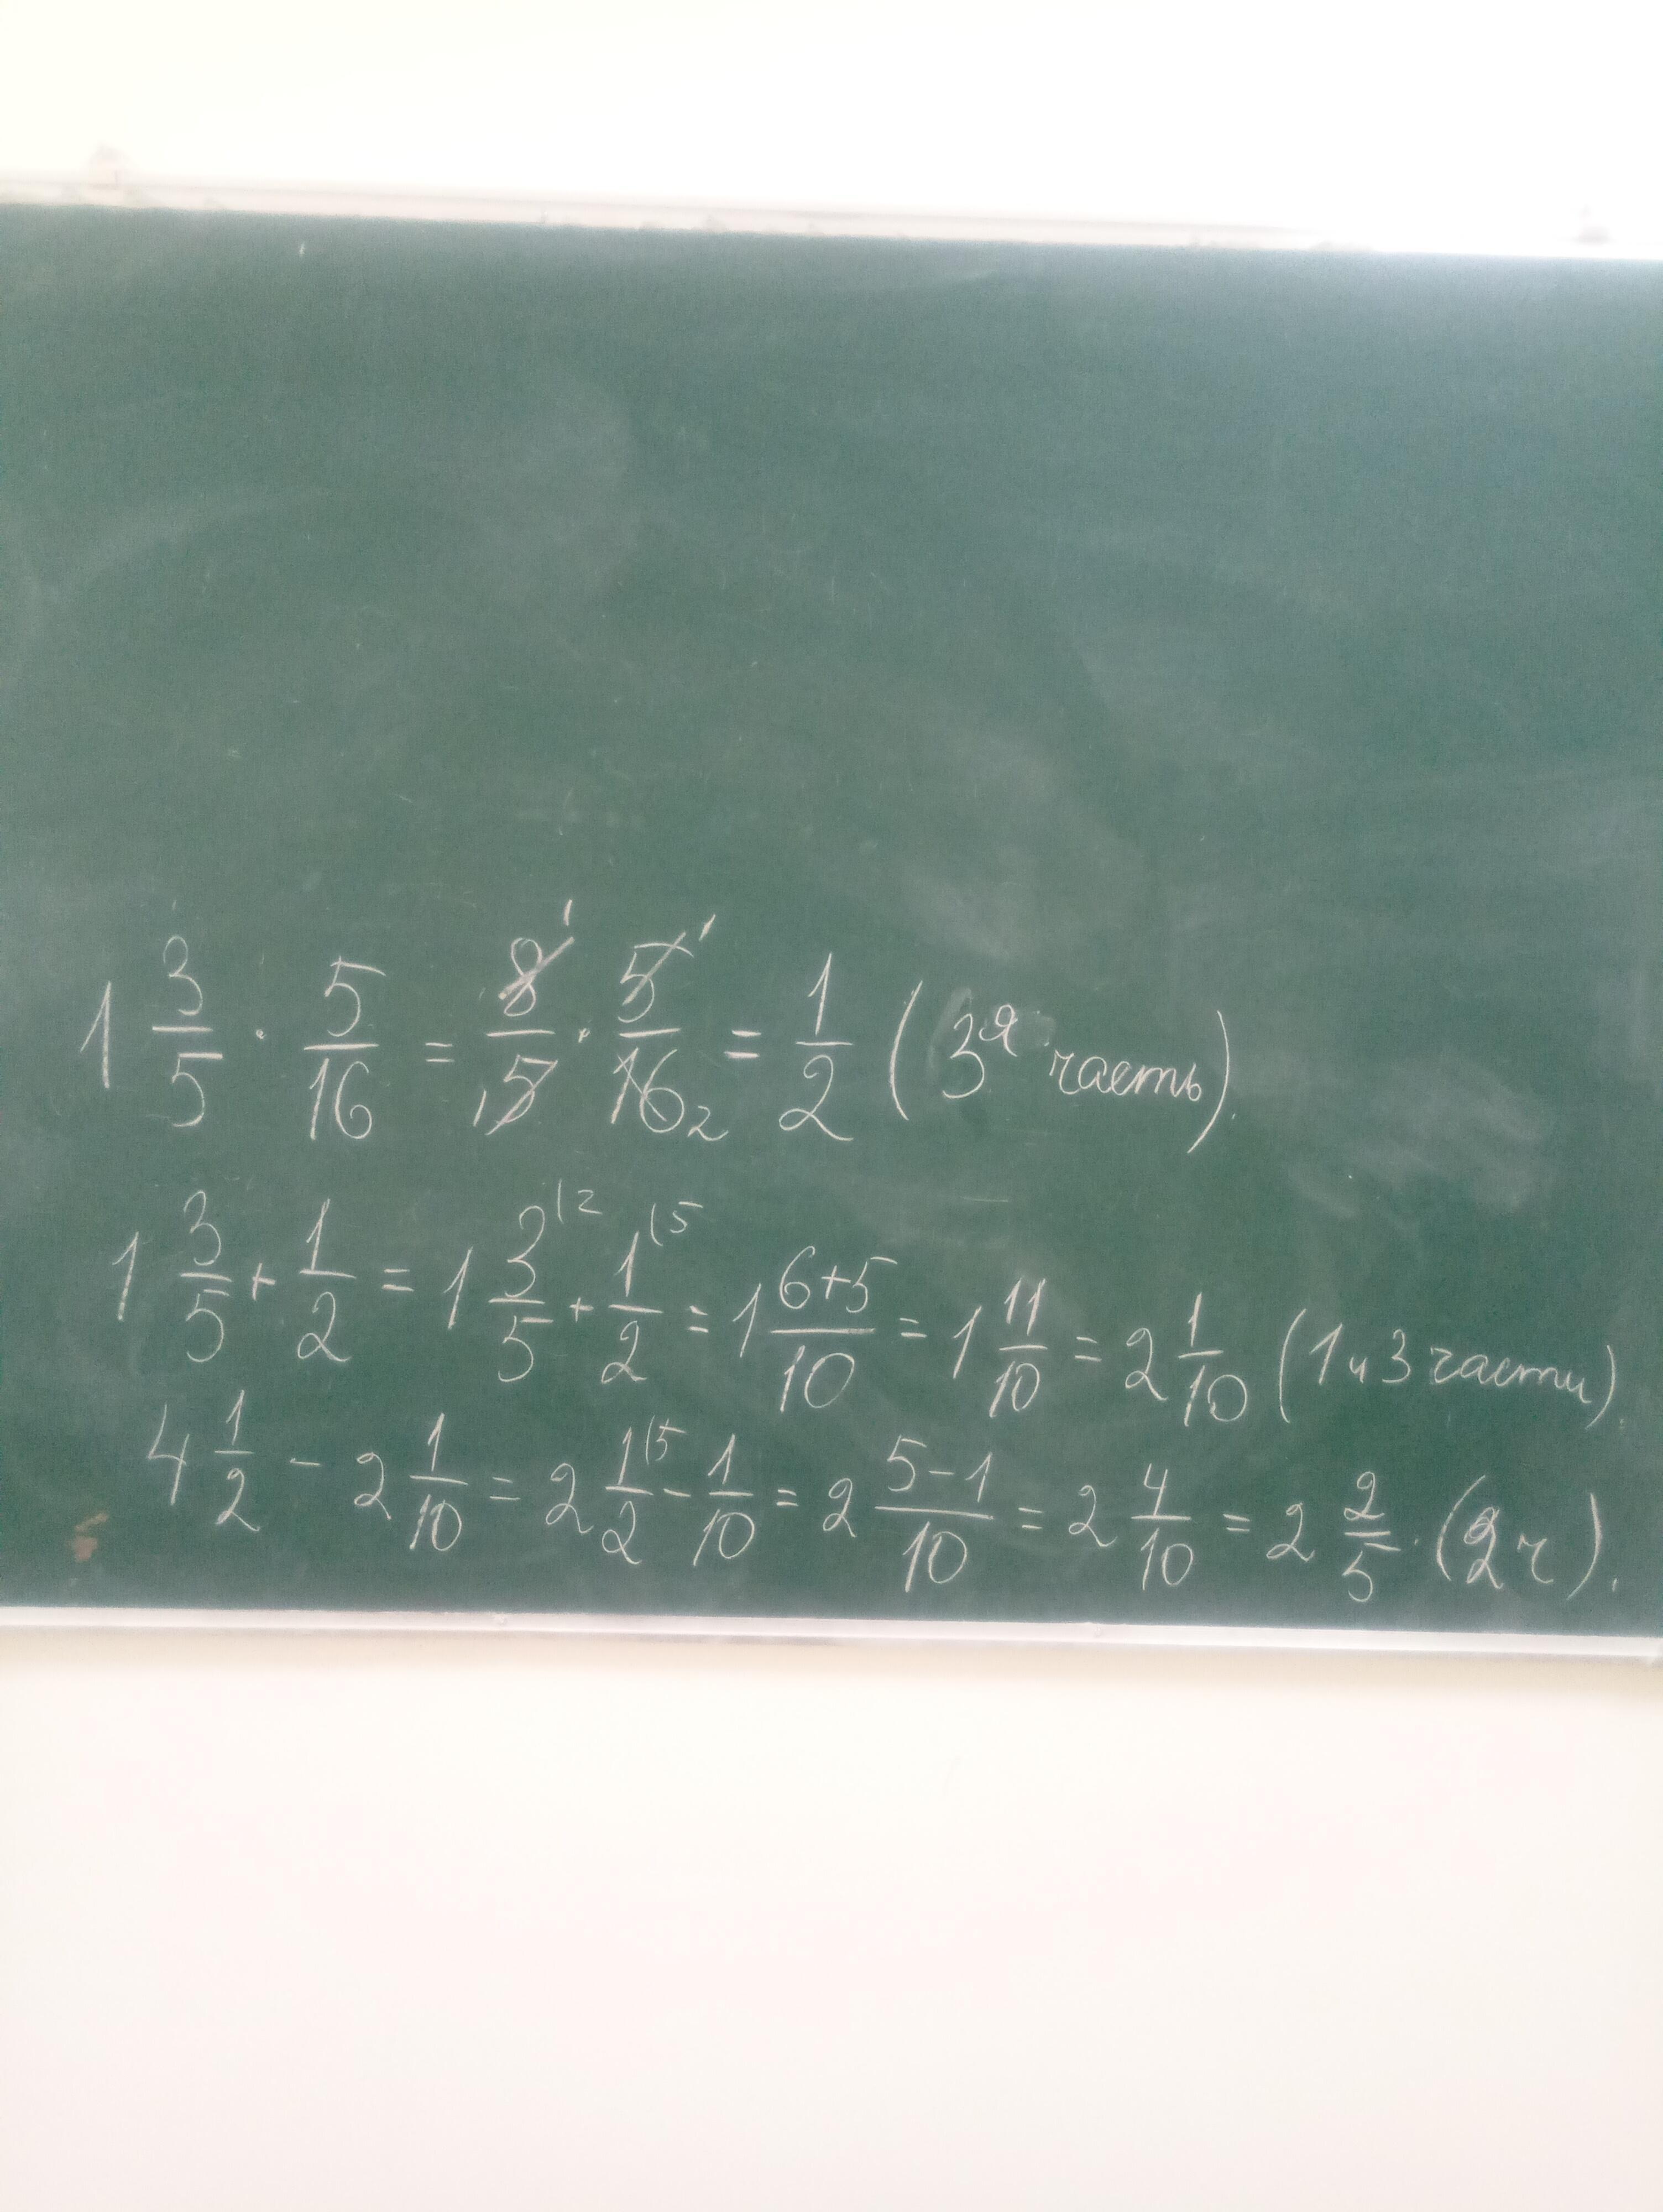 1 3/5 · 5/16 = 8/5 · 5/16 = 1/2 (3я часть).
1 3/5 + 1/2 = 1 3/5 + 1/2 = 1 6+5/10 = 1 11/10 = 2 1/10 (1 и 3 части).
4 1/2 - 2 1/10 = 2 1/2 - 1/10 = 2 5-1/10 = 2 4/10 = 2 2/5. (2 ч).